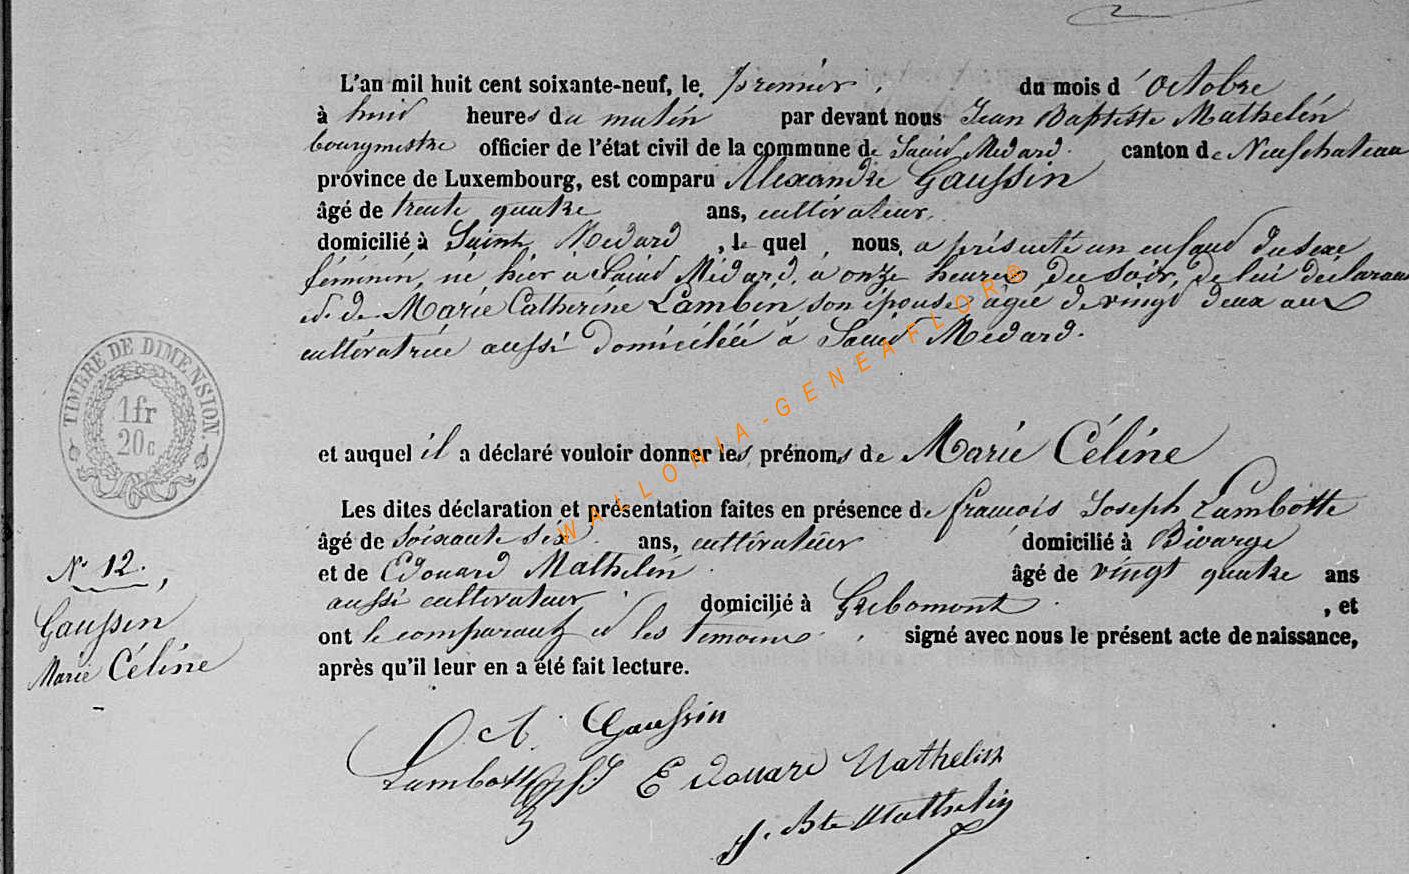 L'an mil huit cent soixante-neuf, le premier du mois d'Octobre
à huit heures du matin par devant nous Jean Baptiste Mathelin
bourgmestre officier de l'état civil de la commune de Saint Médard canton de Neufchateau
province de Luxembourg, est comparu Alexandre Gaussin
âgé de trente quatre ans, cultivateur,
domicilié à Saint Médard, le quel nous a présenté un enfant du sexe
féminin, né hier à Saint Médard, à onze heures du soir, de lui déclarant
et de Marie Catherine Lambin son épouse âgée de vingt deux ans
cultivatrice aussi domiciliée à Saint Médard.
TIMBRE DE DIMENSION.
1fr
20c
et auquel il a déclaré vouloir donner les prénoms de Marie Céline
Les dites déclaration et présentation faites en présence de françois Joseph Lambotte
âgé de soixante six ans, cultivateur domicilié à
et de Edouard Mathelin âgé de vingt quatre ans
aussi cultivateur domicilié à Gribomont, et
ont le comparant et les témoins signé avec nous le présent acte de naissance,
après qu'il leur en a été fait lecture.
N° 12.
Gaussin
Marie Céline
A. Gaussin
Lambotte Edouard Mathelin
J. Bte Mathelin
WALLONIA-GENEAFLOR®